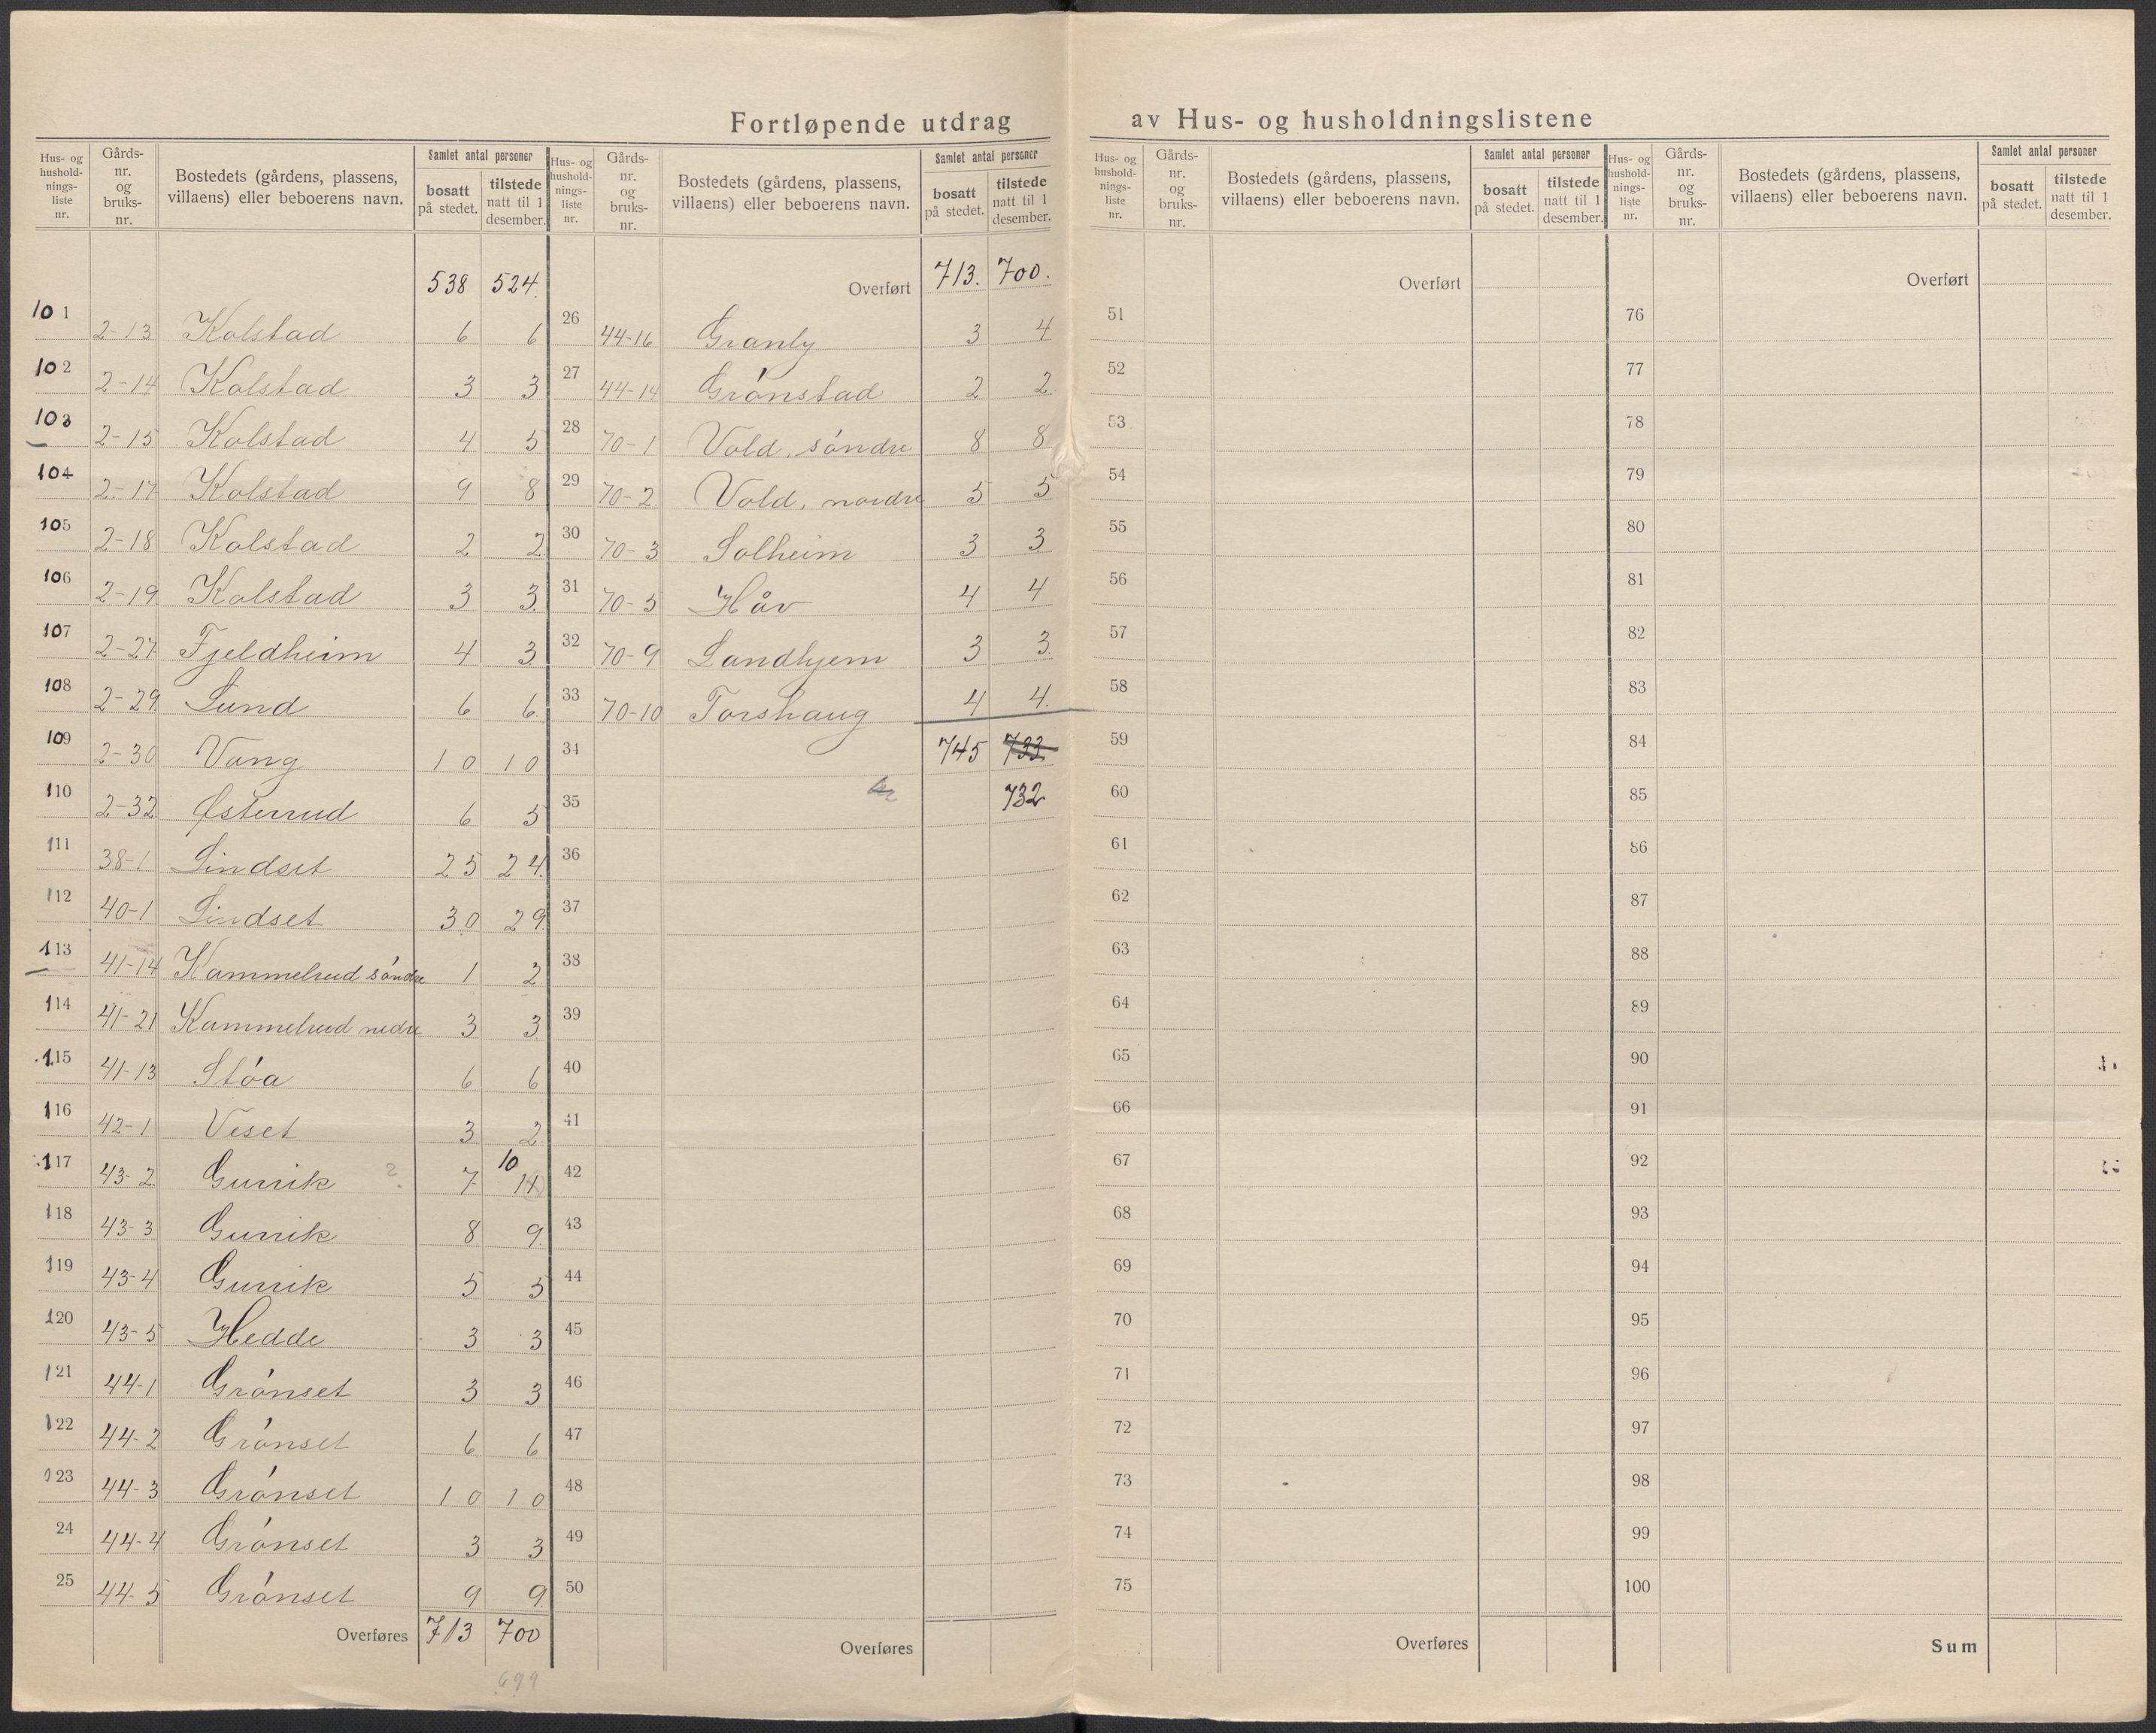 Fortløpende utdrag av Hus- og husholdningslistene
Hus- og hushold-nings-liste nr. | Gårds-nr. og bruks-nr. | Bostedets (gårdens, plassens, villaens) eller beboerens navn. | Samlet antal personer | bosatt på stedet. | tilstede natt til 1 desember.
538 524.
101 2-13 Kolstad 6 6
102 2-14 Kolstad 3 3
103 2-15 Kolstad 4 5
104 2-17 Kolstad 9 8
105 2-18 Kolstad 2 2
106 2-19 Kolstad 3 3
107 2-27 Fjeldheim 4 3
108 2-29 Lund 6 6
109 2-30 Vang 10 10
110 2-32 Østerrud 6 5
111 38-1 Lindset 25 24
112 40-1 Lindset 30 29
113 41-14 Kammelrud söndre 1 2
114 41-21 Kammelrud nedre 3 3
115 41-13 Stóa 6 6
116 42-1 Veset 3 2
117 43-2 ? 7 10
118 43-3 8 9
119 43-4 5 5
120 43-5 Hedde 3 3
121 44-1 Grónset 3 3
122 44-2 Grónset 6 6
123 44-3 Grónset 10 10
24 44-4 Grónset 3 3
25 44-5 Grónset 9 9
Overføres 713 700
699
Hus- og hushold-nings-liste nr. | Gårds-nr. og bruks-nr. | Bostedets (gårdens, plassens, villaens) eller beboerens navn. | Samlet antal personer | bosatt på stedet. | tilstede natt til 1 desember.
Overført 713. 700.
26 44-16 Granly 3 4
27 44-14 Grónstad 2 2
28 70-1 Vold, söndre 8 8
29 70-2 Vold, nordre 5 5
30 70-3 Solheim 3 3
31 70-5 Håv 4 4
32 70-9 Landhjem 3 3
33 70-10 Torshaug 4 4.
34 745 733
35 732
36
37
38
39
40
41
42
43
44
45
46
47
48
49
50
Overføres
Hus- og hushold-nings-liste nr. | Gårds-nr. og bruks-nr. | Bostedets (gårdens, plassens, villaens) eller beboerens navn. | Samlet antal personer | bosatt på stedet. | tilstede natt til 1 desember.
Overført
51
52
53
54
55
56
57
58
59
60
61
62
63
64
65
66
67
68
69
70
71
72
73
74
75
Overføres
Hus- og hushold-nings-liste nr. | Gårds-nr. og bruks-nr. | Bostedets (gårdens, plassens, villaens) eller beboerens navn. | Samlet antal personer | bosatt på stedet. | tilstede natt til 1 desember.
Overført
76
77
78
79
80
81
82
83
84
85
86
87
88
89
90
91
92
93
94
95
96
97
98
99
100
Sum